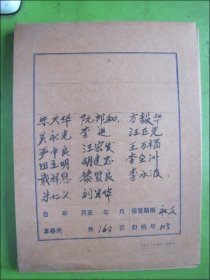 朱大华 阮邦和 方毅华
吴永光 李进 汪正光
尹市良 汪宏发 王万福
田立明 胡建忠 李金洲
戴祥恩 黎贤良 李永波
朱仁义 刘
自 年 月至 年 月 保管期限 永久
本卷共 件 160 页 归档号